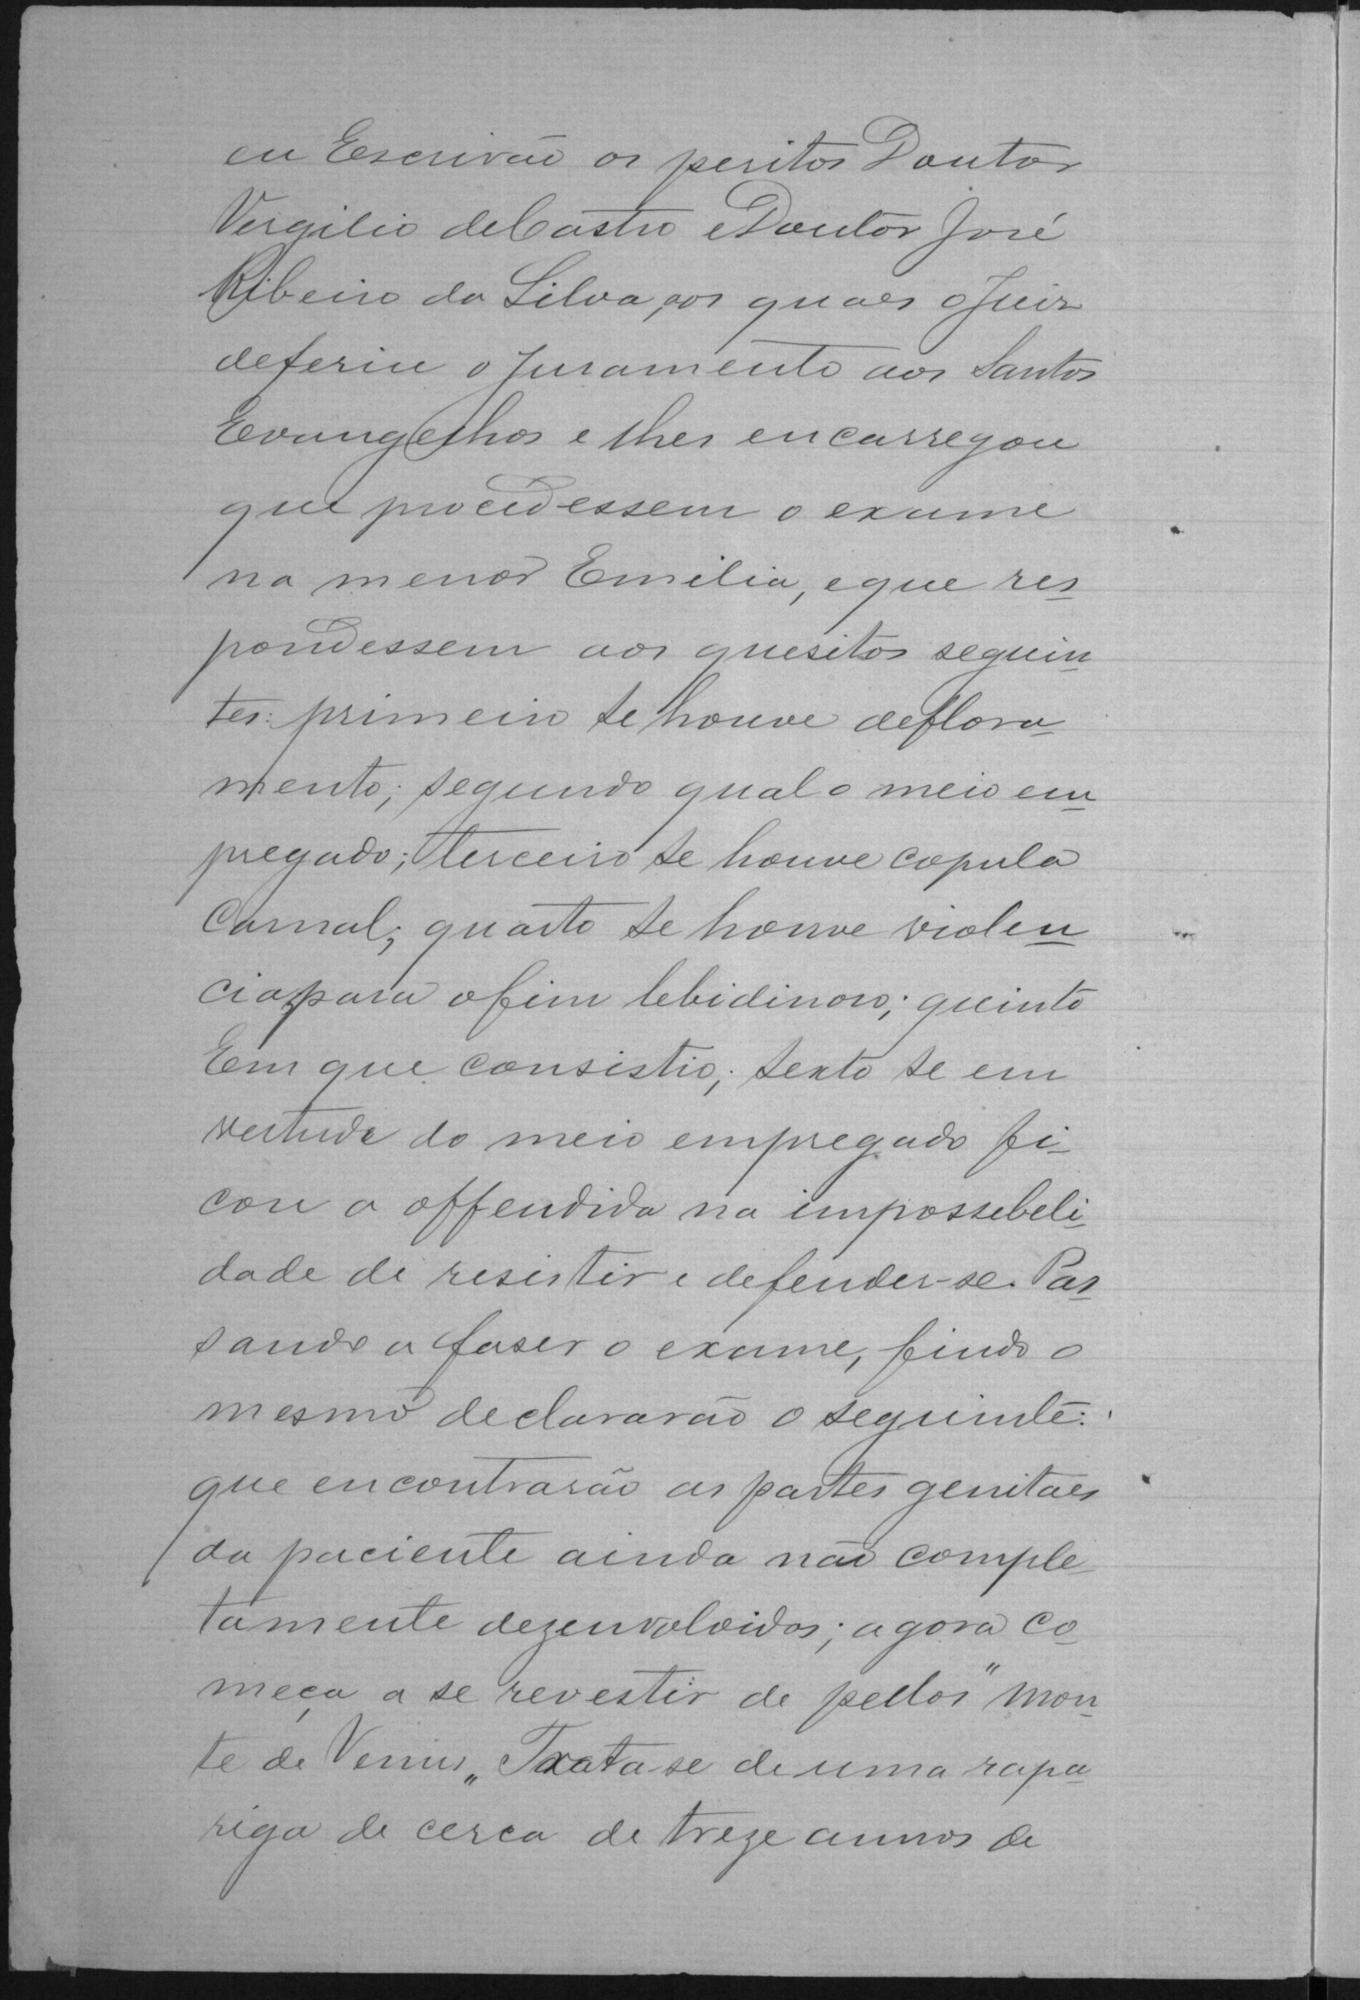 eu Escrivão os peritos Doutor
Vergilio de Castro e Doutor José
Ribeiro da Silva, aos quaes o Juiz
deferiu o juramento aos Santos
Evangelhos e lhes encarregou
que procedessem o exame
na menor Emilia, e que res
pondessem aos quesitos seguin
tes: primeiro se houve deflora
mento; segundo qual o meio em
pregado; terceiro se houve copula
carnal; quarto se houve violen
cia para o fim lebidinoso; quinto
Em que consistio; sexto se em
vertude do meio empregado fi-
cou a offendida na impossebeli
dade de resistir e defender-se. Pas
sando a faser o exame, findo o
mesmo declararão o seguinte:
que encontrarão as partes genitaes
da paciente ainda não comple
tamente dezenvolvidas; agora co
meça a se revestir de pellos "Mon
te de Venus„ Trata-se de uma rapa
riga de cerca de treze annos de